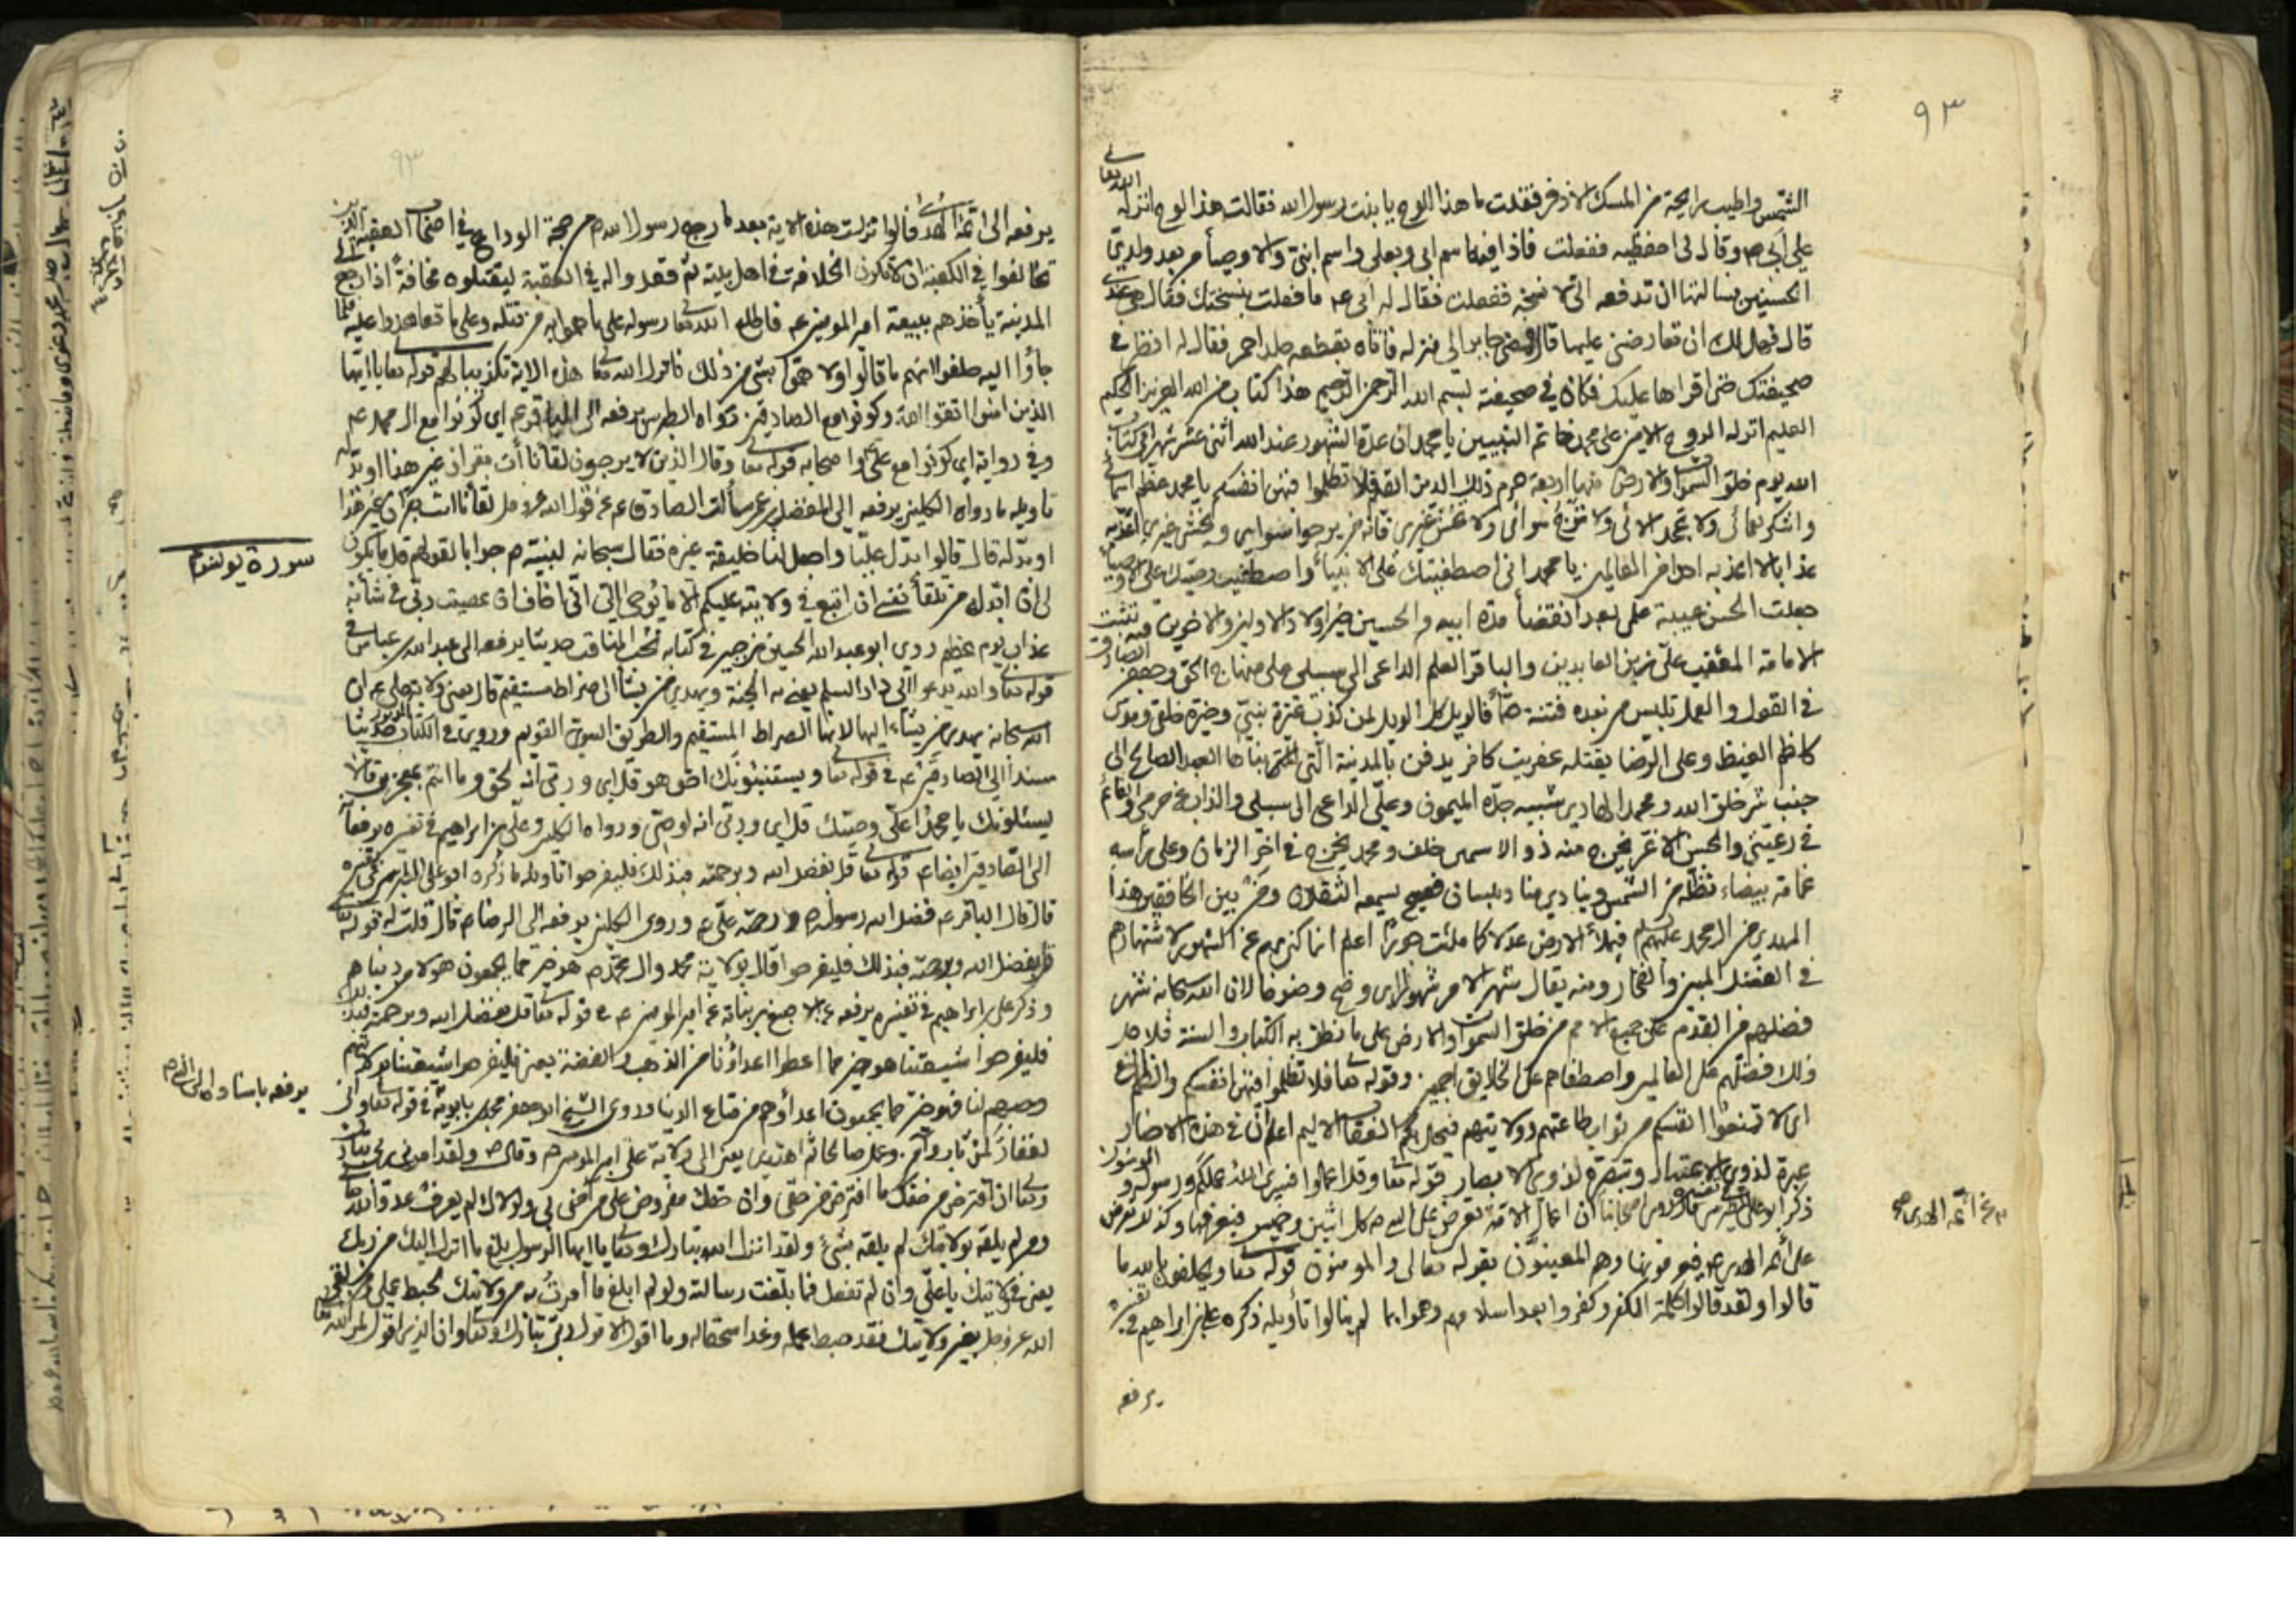 ٩٣
الشمس واطيب رايحة من المسك الاذفر فقلت ما هذا اللوح يا بنت رسول الله فقالت هذا لوح انزله الله تعالى
على ابى ص وقال لى احفظيه ففعلت فاذا فيه اسم ابى وبعلى واسم ابنى والاوصيا من بعد ولدى
الحسين فسالتها ان تدفعه الى لا نسخه ففعلت فقال له ابى عم ما فعلت بنسختك فقال هى عندى
قال فهل لك ان تعارضنى عليها قال فمضى جابر الى منزله فاتاه بقطعه جلد احمر فقال له انظر فى
صحيفتك حتى اقراها عليك فكان فى صحيفته بسم الله الرحمن الرحيم هذا كتاب من الله العزيز الحكيم
العليم انزله الروح الامين على محمد خاتم النبيين يا محمد ان عدة الشهور عند الله اثنى عشر شهرا فى كتاب
الله يوم خلق السموات والارض منها اربعة حرم ذلك الدين القيم فلا تظلموا فيهن انفسكم يا محمد عظم اسمائى
واشكر نعمائى ولا تجحد الائى ولا ترج سوائى ولا تخش غيرى فانه من يرجو سوائى ويخش غيرى اعذبه
عذابا لا اعذبه احدا من العالمين يا محمد انى اصطفيتك على الانبياء واصطفيت وصيك على الاوصياء
جعلت الحسن عيبة علمى بعد انقضاء مدة ابيه والحسين خير اولاد الاولين والاخرين فيه تثبت
الامامة المعقب على زين العابدين والباقر العلم الداعى الى سبيلى على منهاج الحق وجعفر الصادق
فى القول والعمل تلبس من بعده فتنة صماء فالويل كل الويل لمن كذب عترة نبيى وخيرة خلقى وموسى
كاظم الغيظ وعلى الرضا يقتله عفريت كافر يدفن بالمدينة التى بناها العبد الصالح الى
جنب شر خلق الله ومحمد الهادى شبيه جده الميمون وعلى الداعى الى سبيلى والذاب عن حرمى والقائم
فى رعيتى والحسن الاغر يخرج منه ذو الاسمين خلف ومحمد يخرج فى اخر الزمان وعلى راسه
عمامة بيضاء تظله من الشمس وينادى مناد بلسان فصيح يسمعه الثقلان ومن بين الخافقين هذا
المهدى من ال محمد عليهم السلام فيملأ الارض عدلا كما ملئت جورا اعلم انما كنى بهم عن الشهور لاشتهارهم
فى الفضل المبين والفخار ومنه يقال شهر الامر شهورا اى وضح وضوحا لان الله سبحانه شهر
فضلهم من القدم على جميع الامم من خلق السموات والارض على ما نطق به الكتاب والسنة فلاجل
ذلك فضلهم على العالمين واصطفاهم على الخلايق اجمعين وقوله تعالى فلا تظلموا فيهن انفسكم والظلم
اى لا تمنعوا انفسكم من ثواب طاعتهم وولايتهم فيحل بكم العقاب الاليم اعلم ان فى هذه الاخبار
عبرة لذوى الاعتبار وتبصرة لذوى الابصار قوله تعالى وقل اعملوا فسيرى الله عملكم ورسوله والمومنون
ذكر ابو على الطبرسى فى تفسيره قال روى اصحابنا ان اعمال الامة تعرض على النبى ص كل اثنين وخميس فيعرفها وكذلك تعرض
على ائمة الهدى عم فيعرفونها وهم المعنيون بقوله تعالى والمومنون قوله تعالى يحلفون بالله ما
قالوا ولقد قالوا كلمة الكفر وكفروا بعد اسلامهم وهموا بما لم ينالوا تأويله ذكره على بن ابراهيم فى تفسيره
يرفعه
عن ائمة الهدى
٩٣
يرفعه الى ائمة الهدى قالوا نزلت هذه الاية بعد ما رجع رسول الله ص من حجة الوداع فى اصحاب العقبة الذين
تحالفوا فى الكعبة ان لا تكون الخلافة فى اهل بيته ثم قعدوا له فى العقبة ليقتلوه مخافة اذا رجع الى
المدينة يأخذهم ببيعة امير المومنين عم فاطلع الله تعالى رسوله على ما هموا به من قتله وعلى ما تعاهدوا عليه فلما
جاؤا اليه حلفوا انهم ما قالوا ولا هموا بشىء من ذلك فانزل الله تعالى هذه الاية تكذيبا لهم قوله تعالى يا ايها
الذين امنوا اتقوا الله وكونوا مع الصادقين رواه الطبرسى يرفعه الى الباقر عم اى كونوا مع ال محمد عم
وفى رواية اى كونوا مع على واصحابه قوله تعالى وقال الذين لا يرجون لقائنا ائت بقران غير هذا او بدله
تاويله ما رواه الكلينى يرفعه الى المفضل بن عمر سألت الصادق عم عن قول الله عز وجل لقائنا ائت بقران غير هذا
او بدله قال قالوا بدل عليا واجعل لنا خليفة غيره فقال سبحانه لنبيه ص جوابا لقولهم قل ما يكون
لى ان ابدله من تلقاء نفسى ان اتبع فى ولايته عليكم الا ما يوحى الى انى اخاف ان عصيت ربى فى شأنه
عذاب يوم عظيم روى ابو عبد الله الحسين بن جبير فى كتابه نخب المناقب حديثا يرفعه الى عبد الله بن عباس فى
قوله تعالى والله يدعو الى دار السلم يعنى به الجنة ويهدى من يشأ الى صراط مستقيم قال يعنى ولاية على عم اى
الله سبحانه يهدى من يشاء اليها لانها الصراط المستقيم والطريق السوى القويم وروى فى الكتاب المذكور حديثا
مسندا الى الصادق عم فى قوله تعالى ويستنبئونك احق هو قل اى وربى انه لحق وما انتم بمعجزين قال
يسئلونك يا محمد اعلى وصيك قل اى وربى انه لوصى ورواه الكلينى وعلى بن ابراهيم فى تفسيره يرفعا
الى الصادق ايضا عم قوله تعالى قل بفضل الله وبرحمته فبذلك فليفرحوا تاويله ما ذكره ابو على الطبرسى فى تفسيره
قال قال الباقر عم فضل الله رسوله ص ورحمته على عم وروى الكلينى يرفعه الى الرضا عم قال قلت له قوله تعالى
قل بفضل الله وبرحمته فبذلك فليفرحوا قال بولاية محمد وال محمد ص هو خير مما يجمعون هولا من دنياهم
وذكر على بن ابراهيم فى تفسيره يرفعه عن الاصبغ بن نباتة عن امير المومنين عم فى قوله تعالى قل بفضل الله وبرحمته فبذلك
فليفرحوا شيعتنا هو خير مما اعطوا اعداؤنا من الذهب والفضة يعنى فليفرحوا شيعتنا بولايتهم
وحبهم لنا فهو خير مما يجمعون اعداؤهم من متاع الدنيا وروى الشيخ ابو جعفر محمد بن بابويه فى قوله تعالى وانى
لغفار لمن تاب وآمن وعمل صالحا ثم اهتدى يعنى الى ولاية على امير المومنين عم وقال ص ولقد امرنى ربى تبارك
وتعالى ان افترض من حقك ما افترض من حقى وان حقك مفروض على من آمن بى ولولاك لم يعرف عدو الله
ومن لم يلقه بولايتك لم يلقه بشىء ولقد انزل الله تبارك وتعالى يا ايها الرسول بلغ ما انزل اليك من ربك
يعنى فى ولايتك يا على وان لم تفعل فما بلغت رسالته ولو لم ابلغ ما امرت به من ولايتك لحبط عملى ومن لقى
الله عز وجل بغير ولايتك فقد حبط عمله وغدا سحقا له وما اقول الا قول ربى تبارك وتعالى وان الذى اقول لمن الله
سورة يونس
يرفعه باسناده الى النبى ص